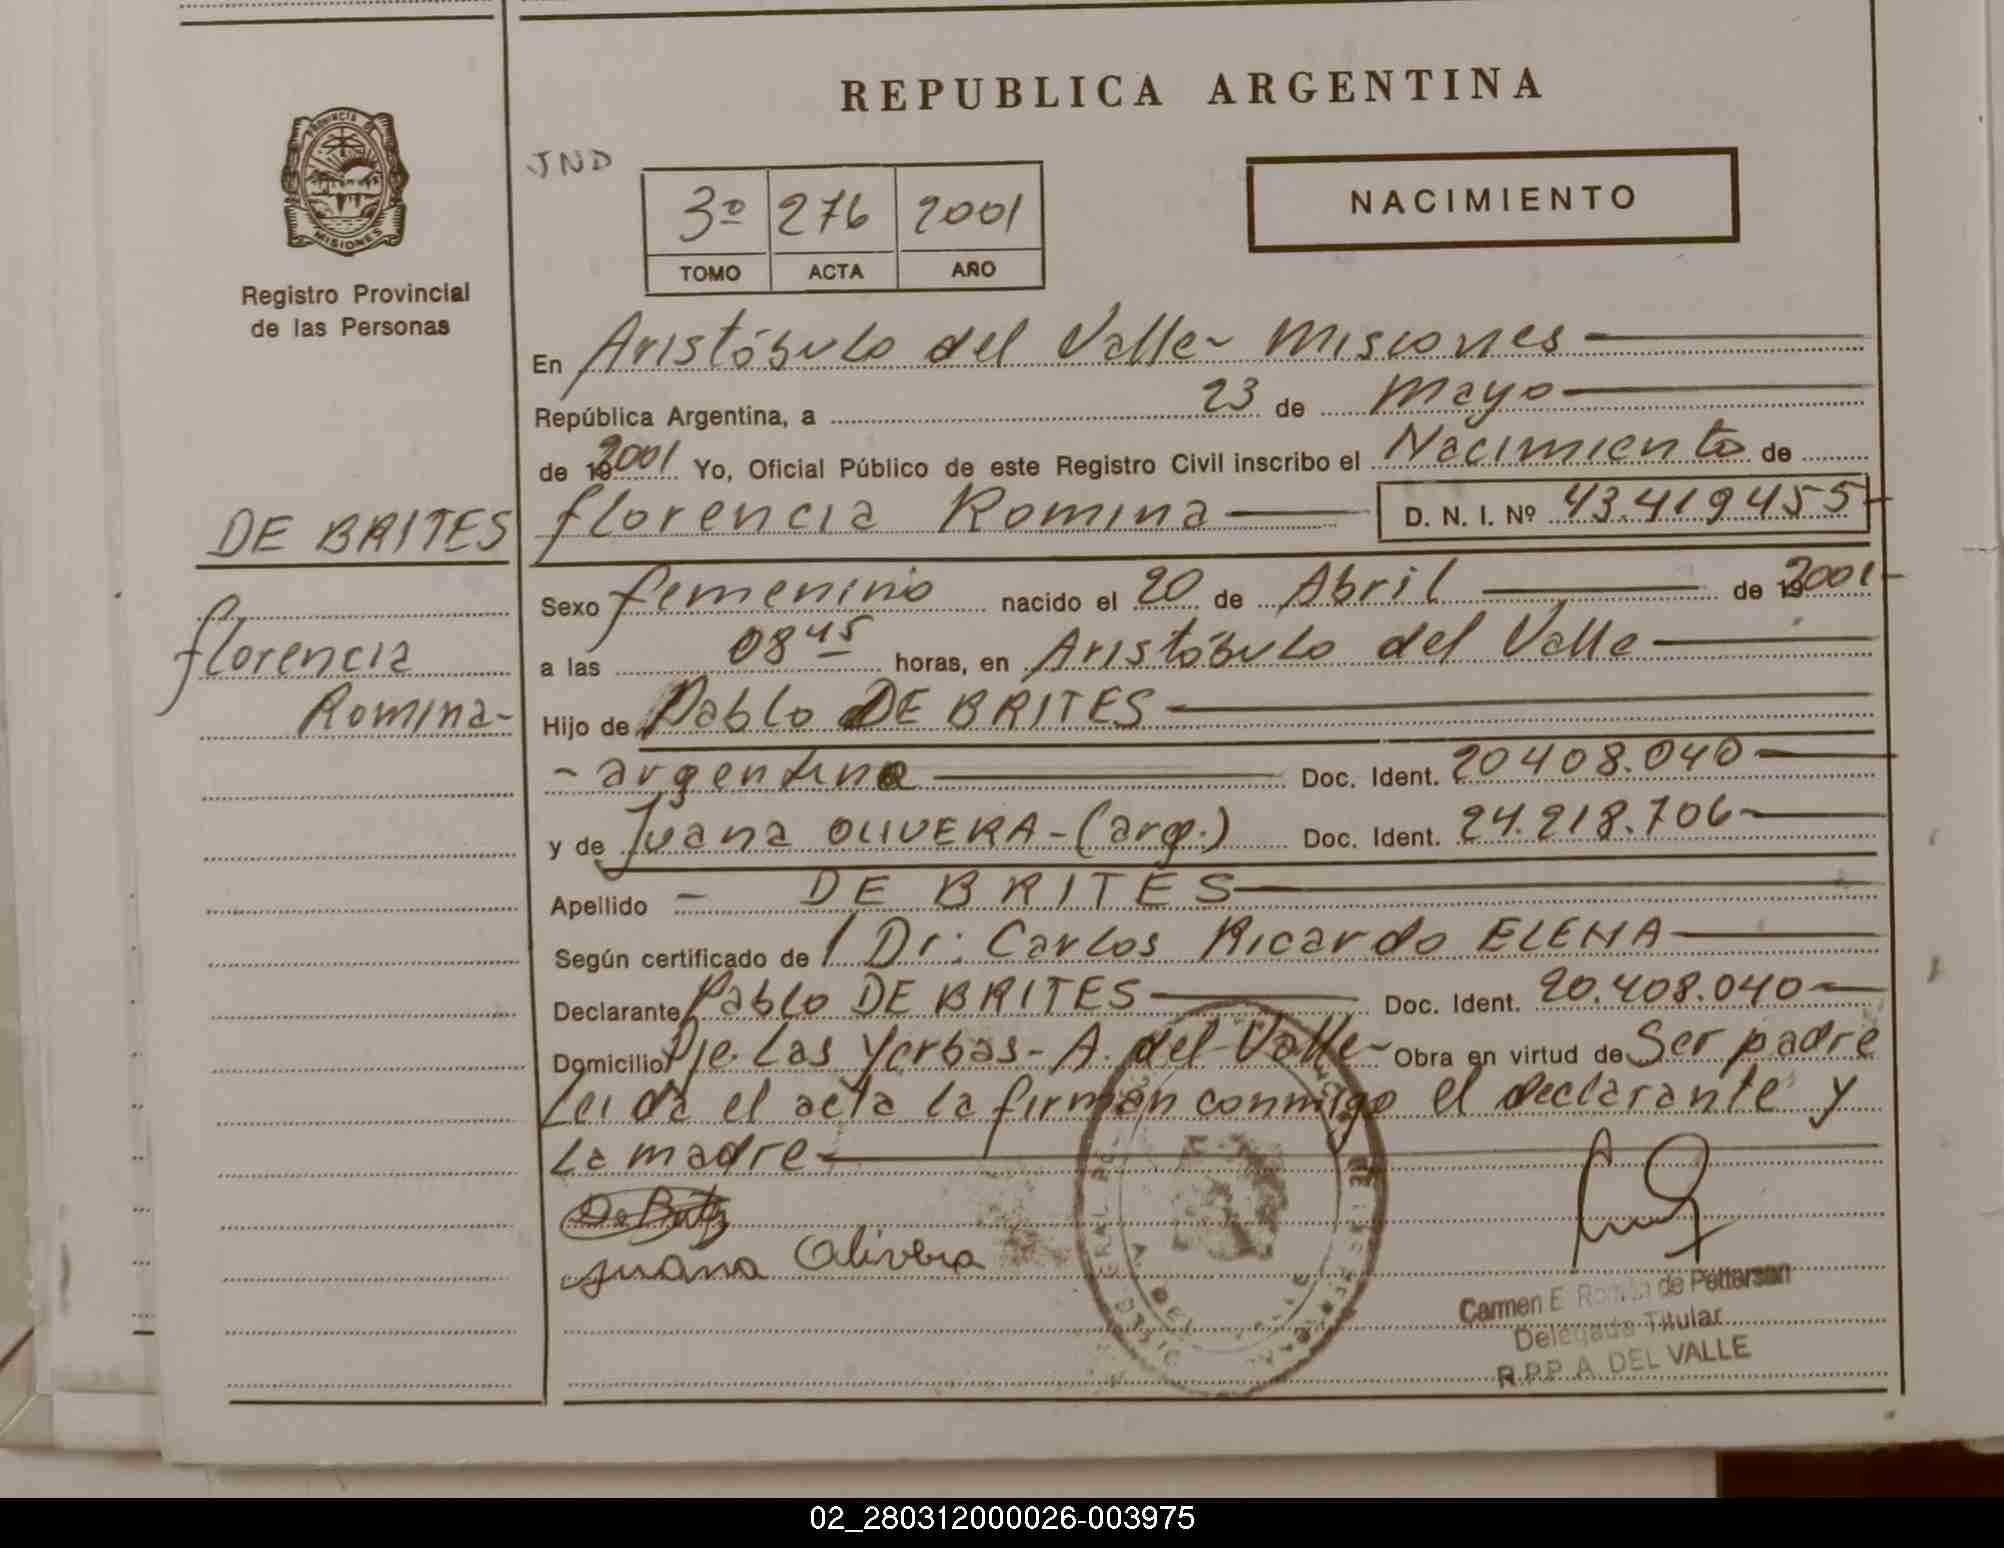 REPUBLICA ARGENTINA
JND
3º 276 2001
TOMO ACTA AÑO
NACIMIENTO
PROVINCIA DE
MISIONES
Registro Provincial
de las Personas
DE BRITES
florencia
Romina-
En Aristóbulo del Valle- Misiones
República Argentina, a 23 de Mayo
de 2001 Yo, Oficial Público de este Registro Civil inscribo el Nacimiento de
florencia Romina D. N. I. Nº 43.419455
Sexo femenino nacido el 20 de Abril de 2001
a las 08 45 horas, en Aristóbulo del Valle
Hijo de Pablo DE BRITES
- argentino Doc. Ident. 20408.040
y de Juana OLIVERA-(arg.) Doc. Ident. 24.218.706-
Apellido - DE BRITES
Según certificado de Dr: Carlos Ricardo ELENA
Declarante Pablo DE BRITES Doc. Ident. 20.408.040-
Domicilio Pje. Las Yerbas- A. del Valle- Obra en virtud de Ser padre
Leida el acta la firman conmigo el declarante y
La madre
Juana Olivera
Carmen E. de Petterson
Delegada Titular
R.P.P. A. DEL VALLE
02_280312000026-003975